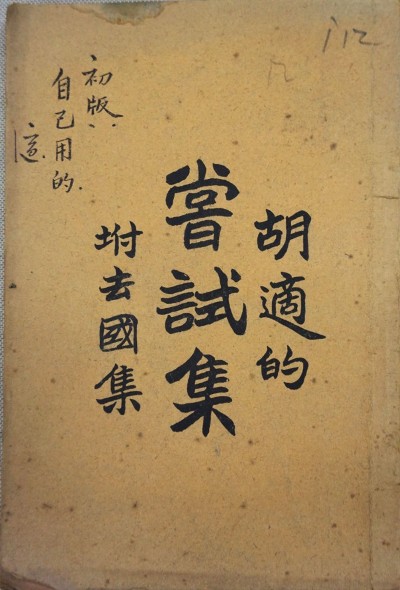 胡適的
嘗試集
坿去國集
初版，
自己用的.
適.